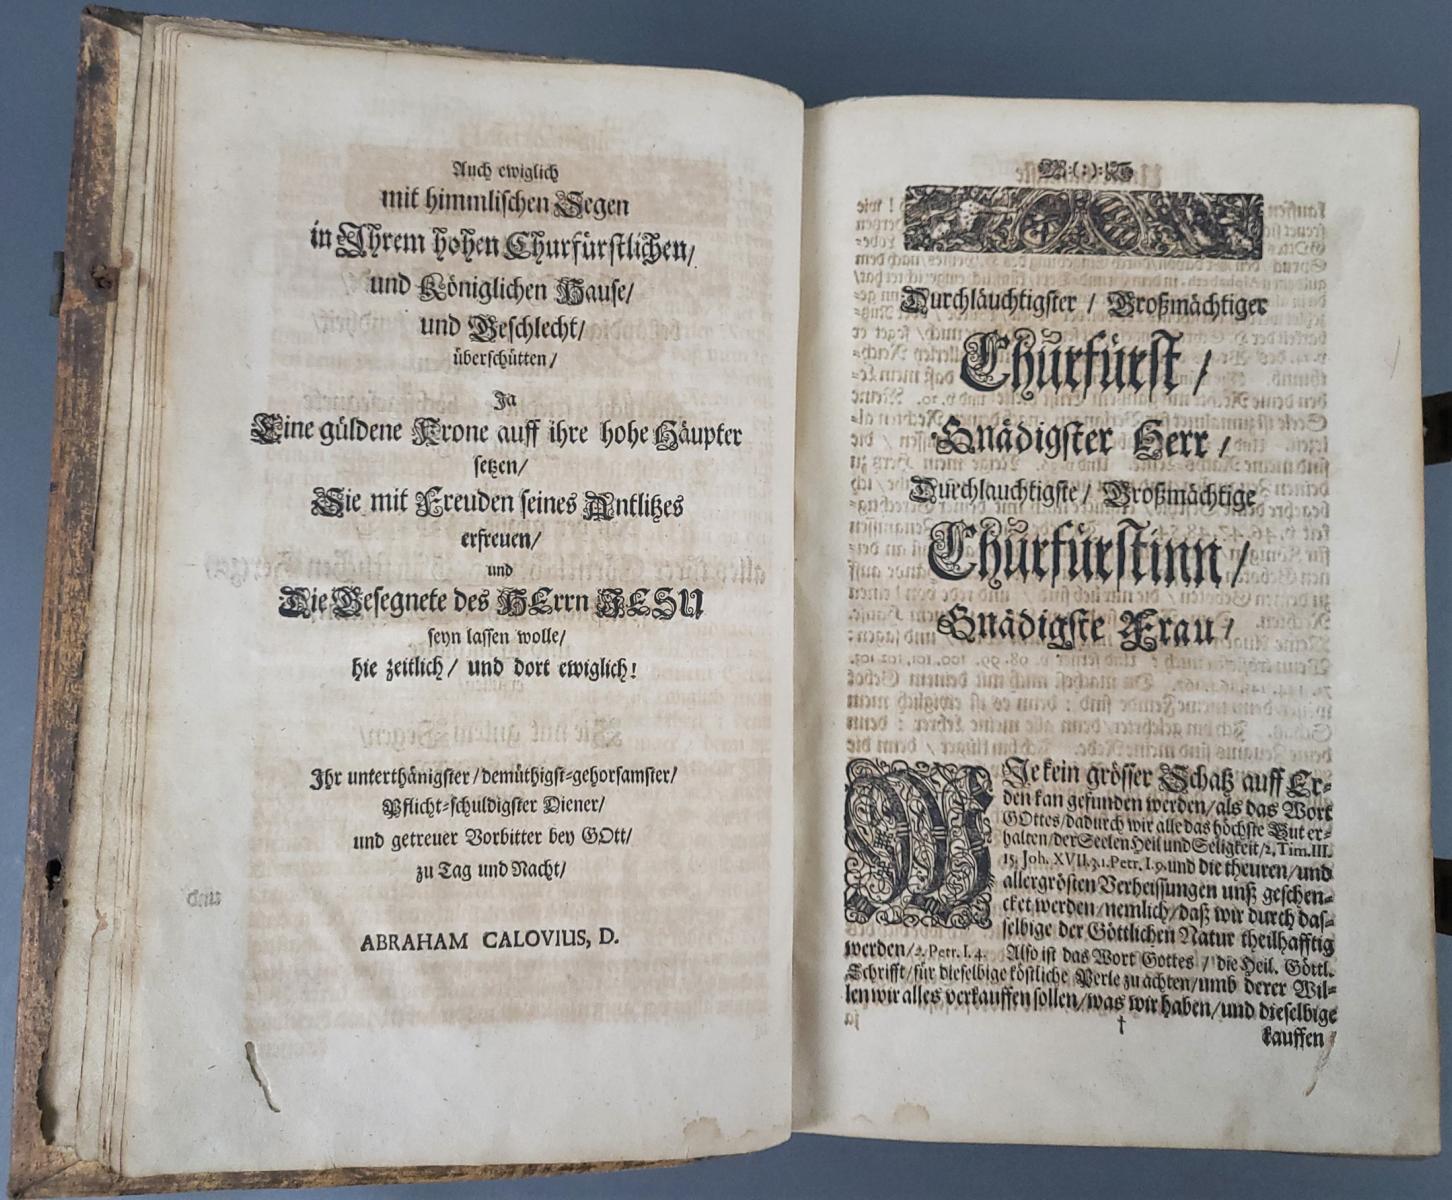 Auch ewiglich
mit himmlischen Segen
in Ihrem hohen Churfürstlichen/
und Königlichen Hause/
und Geschlecht/
überschütten/
Ja
Eine güldene Krone auff ihre hohe Häupter
setzen/
Sie mit Freuden seines Antlitzes
erfreuen/
und
Die Gesegnete des HErrn JESU
seyn lassen wolle/
hie zeitlich/ und dort ewiglich!
Ihr unterthänigster/demüthigst-gehorsamster/
Pflicht-schuldigster Diener/
und getreuer Vorbitter bey GOtt/
zu Tag und Nacht/
ABRAHAM CALOVIUS, D.
Durchläuchtigster / Großmächtiger
Churfürst /
Gnädigster Herr /
Durchlauchtigste/ Großmächtige
Churfürstinn/
Gnädigste Frau/
WIe kein grösser Schatz auff Er-
den kan gefunden werden/als das Wort
GOttes/dadurch wir alle das höchste Gut er-
halten/der Seelen Heil und Seligkeit/2, Tim. III.
15, Joh. XVII. 3. 1. Petr. I. 9. und die theuren/und
allergrösten Verheissungen unß geschen-
cket werden/nemlich/daß wir durch das-
selbige der Göttlichen Natur theilhafftig
werden/2. Petr. I. 4. Also ist das Wort Gottes / die Heil. Göttl.
Schrifft/für dieselbige köstliche Perle zu achten/umb derer Wil-
len wir alles verkauffen sollen/was wir haben/und dieselbige
†
kauffen